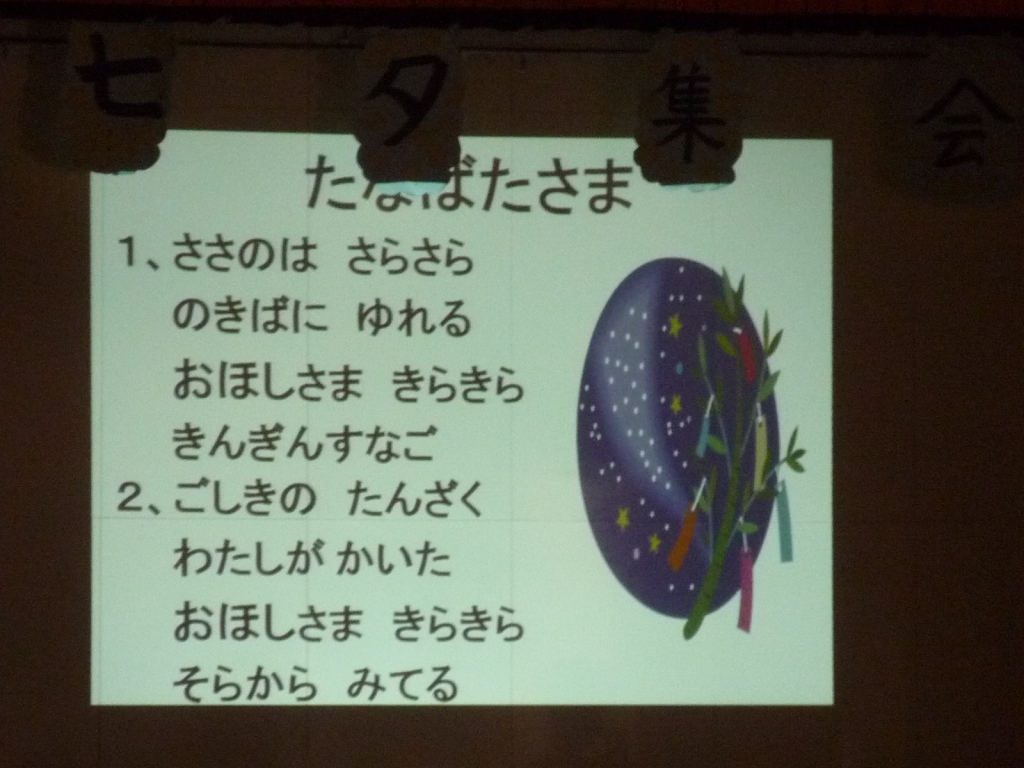 七夕集会
たなばたさま
1、ささのは　さらさら
のきばに　ゆれる
おほしさま　きらきら
きんぎんすなご
2、ごしきの　たんざく
わたしが かいた
おほしさま　きらきら
そらから　みてる